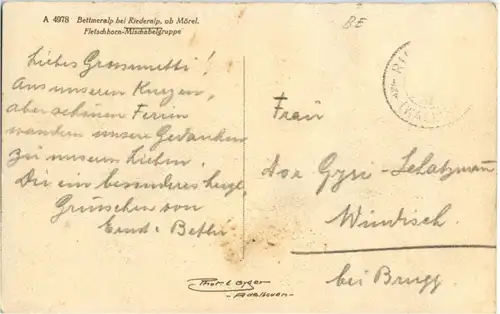 A 4978 Bettmeralp bei Riederalp, ob Mörel.
Fletschhorn-Mischabelgruppe
BE
Liebes Grossmuetti!
Aus unseren Kurzen,
aber schönen Ferien
wandern unsere Gedanken
zu unseren Lieben.
Dir ein besonderes herzl.
Grüsschen von
Ernst & Bethli
Frau
Gysi-Schatzmann
Windisch.
bei Brugg.
Phot. E. Gyger
-Adelboden-